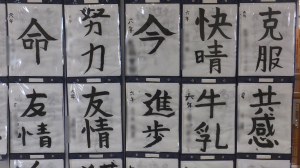 克服
快晴
今
努力
命
共感
牛乳
進歩
友情
友情